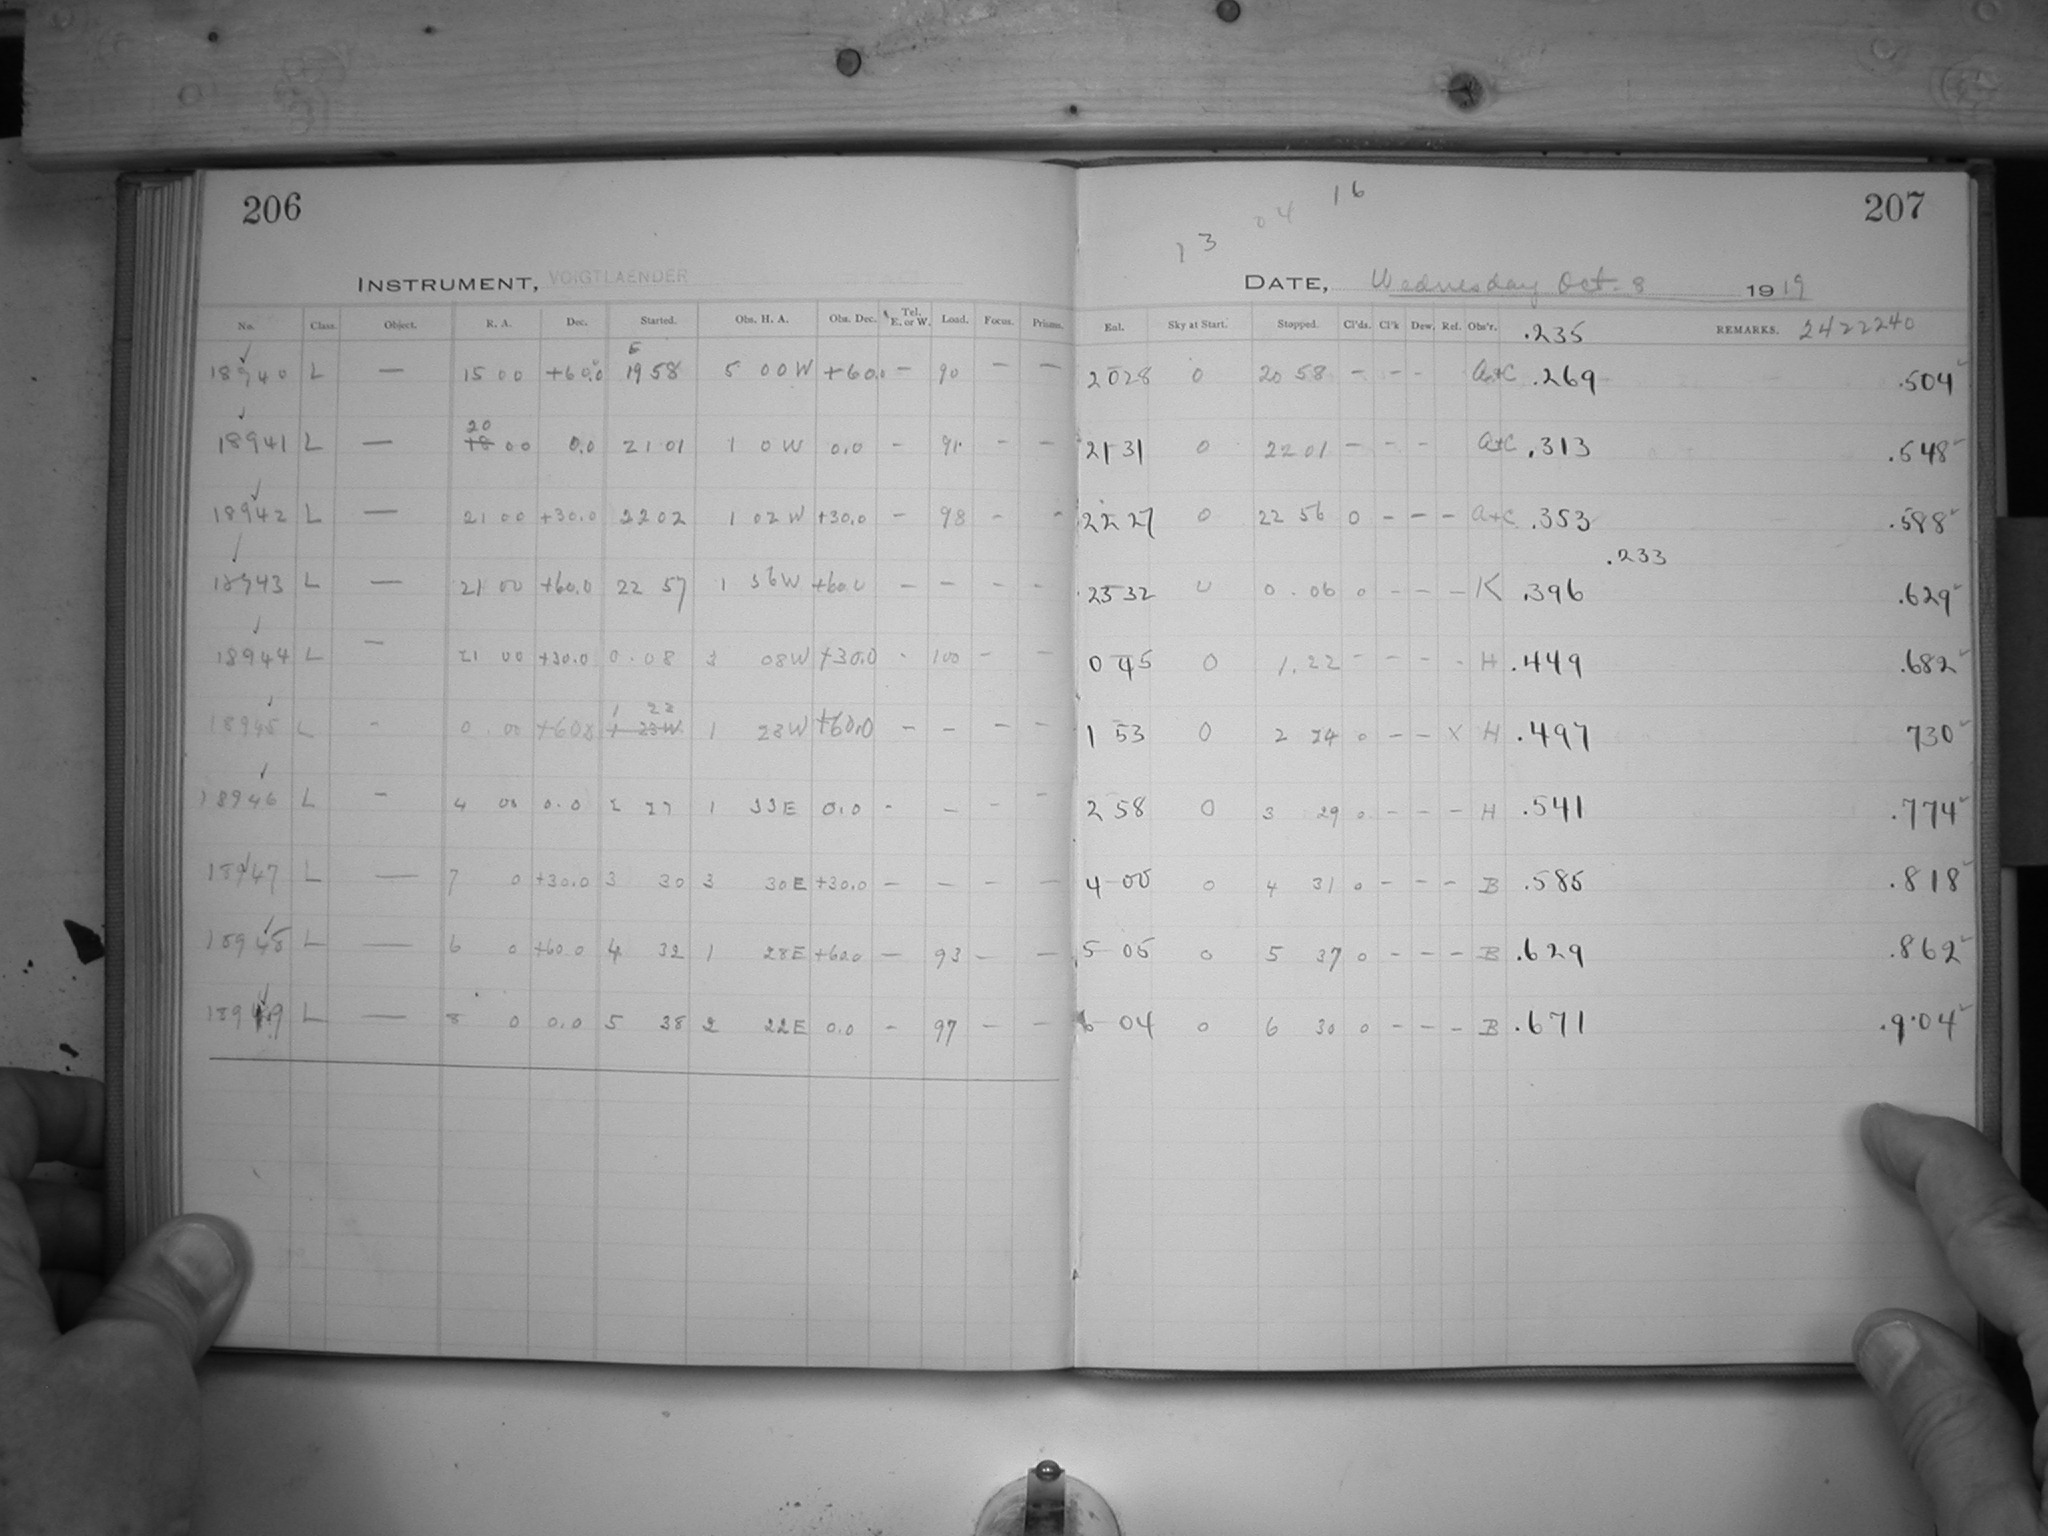 206
INSTRUMENT, VOIGTLAENDER
No. Class. Object. R. A. Dec. Started. Obs. H. A. Obs. Dec. Tel. E. or W. Load. Focus. Prisms.
18940 L — 15 00 +60.0 19 58 5 00 W +60.0 — 90 — —
18941 L — 20 18 00 0.0 21 01 1 0 W 0.0 - 91 - —
18942 L — 21 00 +30.0 22 02 1 02 W +30.0 - 98 - -
18943 L — 21 00 +60.0 22 57 1 56 W +60.0 — — - -
18944 L — 21 00 +30.0 0.08 3 08 W +30.0 - 100 - -
18945 L - 0.00 +60.0 1 23 1 23 W 1 23 W +60.0 — — — —
18946 L - 4 00 0.0 2 27 1 33 E 0.0 - — - -
18947 L — 7 0 +30.0 3 30 3 30 E +30.0 — — — —
18948 L — 6 0 +60.0 4 32 1 28 E +60.0 — 93 — —
18949 L — 8 0 0.0 5 38 2 22 E 0.0 - 97 — —
16
04
13
207
DATE, Wednesday Oct. 8 1919
Eal. Sky at Start. Stopped. Cl'ds. Cl'k Dew. Ref. Obs'r. .235 REMARKS. 2422240
20 28 0 20 58 - - - A+C .269 .504
21 31 0 22 01 - - - A+C .313 .548
22 27 0 22 56 0 - - - A+C .353 .588
.233
23 32 0 0.06 0 - - - K .396 .629
0 45 0 1.22 - - - - H .449 .682
1 53 0 2 24 0 - - X H .497 730
2 58 0 3 29 0 - - - H .541 .774
4 00 0 4 31 0 - - - B .585 .818
5 05 0 5 37 0 - - - B .629 .862
6 04 0 6 30 0 - - - B .671 .904